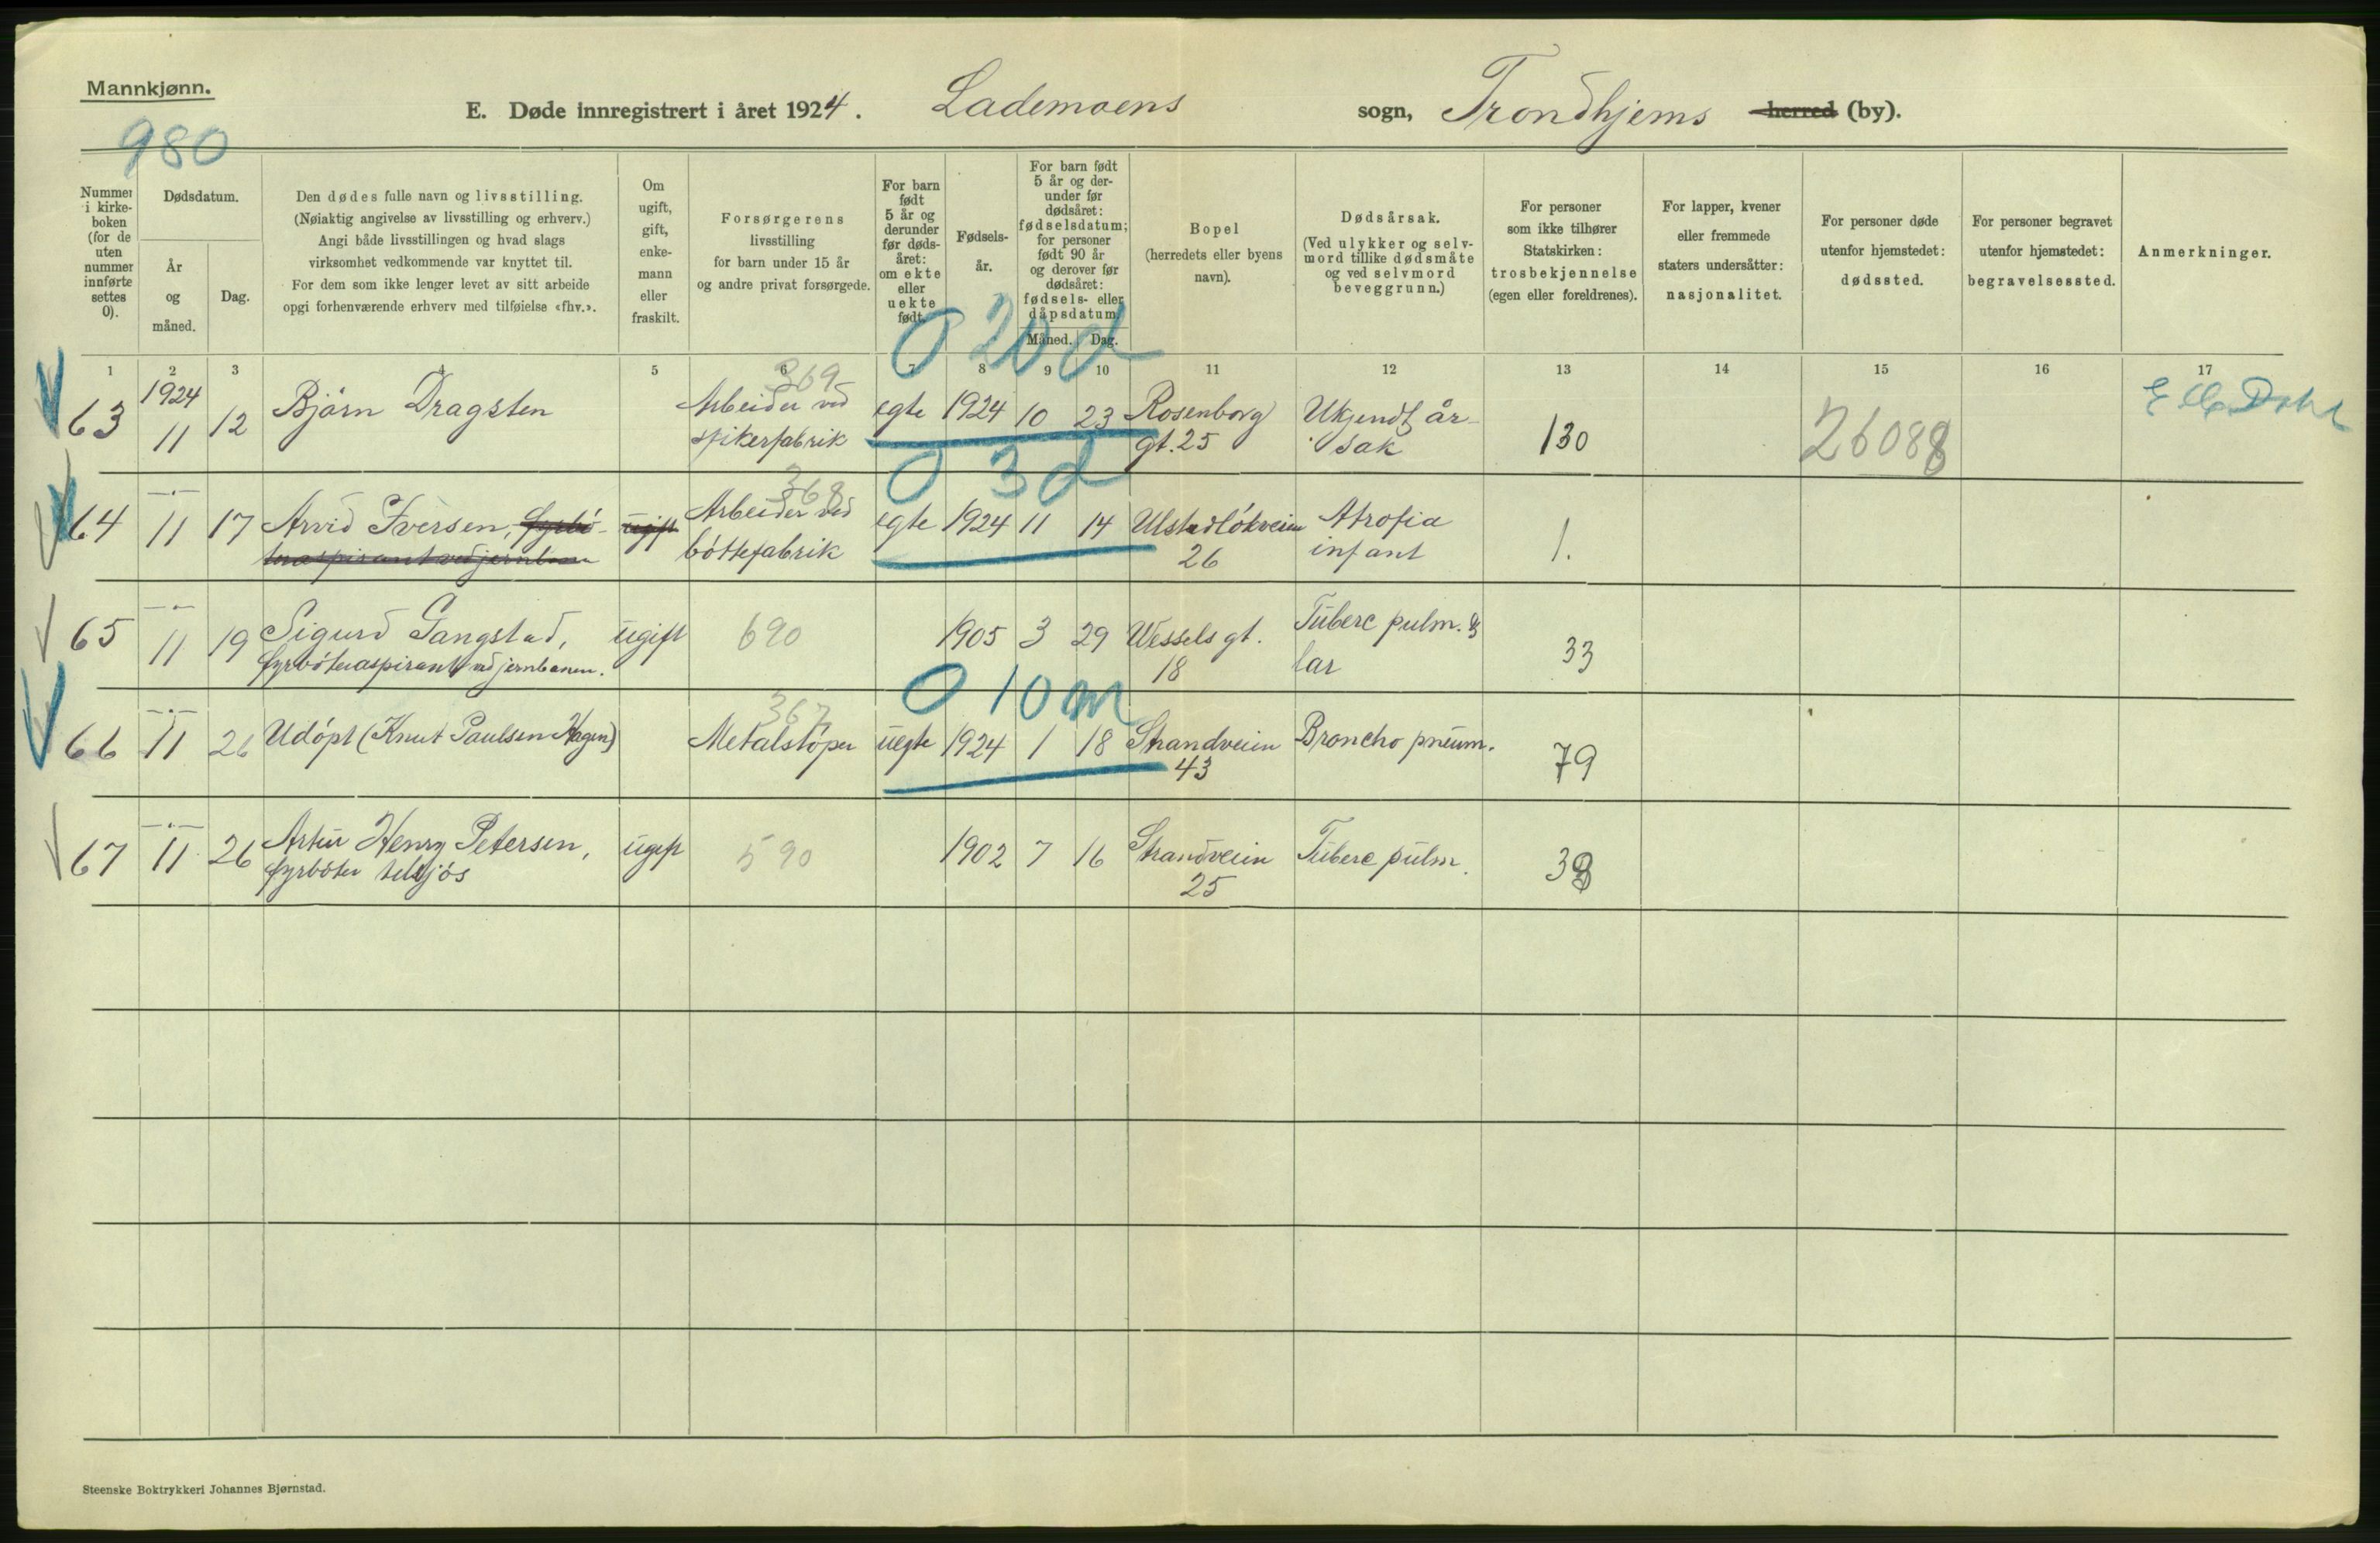 Mannkjønn.
E. Døde innregistrert i året 1924. Lademoens sogn, Trondhjems herred (by).
980
Nummer i kirkeboken (for de uten nummer innførte settes 0).
Dødsdatum.
År og måned.
Dag.
Den dødes fulle navn og livsstilling.
(Nøiaktig angivelse av livsstilling og erhverv.)
Angi både livsstillingen og hvad slags
virksomhet vedkommende var knyttet til.
For dem som ikke lenger levet av sitt arbeide
opgi forhenværende erhverv med tilføielse «fhv.».
Om ugift, gift, enkemann eller fraskilt.
Forsørgerens
livsstilling
for barn under 15 år
og andre privat forsørgede.
For barn født 5 år og derunder før dødsåret: om ekte eller uekte født.
Fødselsår.
For barn født 5 år og derunder før dødsåret: fødselsdatum; for personer født 90 år og derover før dødsåret: fødsels- eller dåpsdatum.
Måned. Dag.
Bopel
(herredets eller byens
navn).
Dødsårsak.
(Ved ulykker og selvmord tillike dødsmåte og ved selvmord beveggrunn.)
For personer
som ikke tilhører
Statskirken:
trosbekjennelse
(egen eller foreldrenes).
For lapper, kvener
eller fremmede
staters undersåtter:
nasjonalitet.
For personer døde
utenfor hjemstedet:
dødssted.
For personer begravet
utenfor hjemstedet:
begravelsessted.
Anmerkninger.
1 2 3 4 5 6 7 8 9 10 11 12 13 14 15 16 17
0 20 d
369
63 1924 11 12 Bjørn Dragsten Arbeider ved spikerfabrik egte 1924 10 23 Rosenborg gt. 25 Ukjendt årsak 130 26088
0 3 d
368
64 —"— 11 17 Arvid Iversen, fyrbøteraspirant ved jernbanen ugift Arbeider ved bøttefabrik egte 1924 11 14 Ulstadløkveien 26 Atrofia infant 1.
65 —"— 11 19 Sigurd Gangstad, fyrbøteraspirant ved jernbanen. ugift 690 1905 3 29 Wessels gt. 18 Tuberc pulm. & lar 33
0 10 m
367
66 —"— 11 26 Udøpt (Knut Paulsen Hagen) Metalstøper uegte 1924 1 18 Strandveien 43 Broncho pneum. 79
67 —"— 11 26 Artur Henry Petersen, fyrbøter tilsjøs ugift 590 1902 7 16 Strandveien 25 Tuberc pulm. 38
Steenske Boktrykkeri Johannes Bjørnstad.